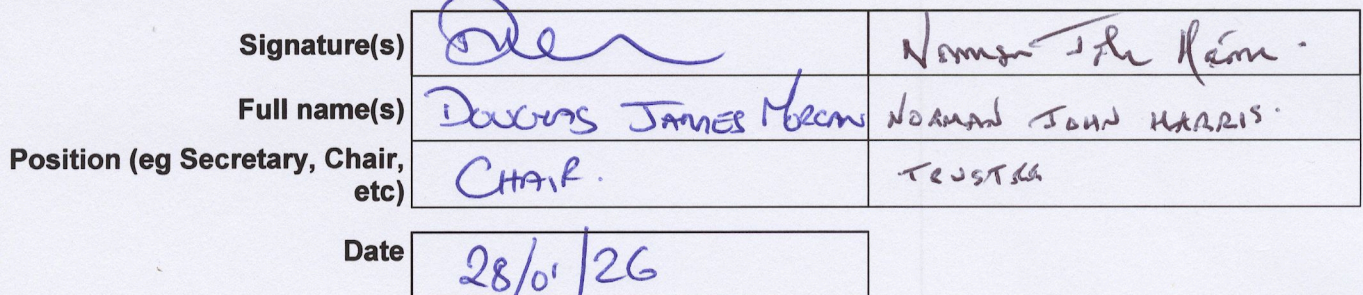 Signature(s) Norman John Harris.
Full name(s) DOUGLAS JAMES MORGAN NORMAN JOHN HARRIS.
Position (eg Secretary, Chair,
etc) CHAIR. TRUSTEE
Date 28/01/26